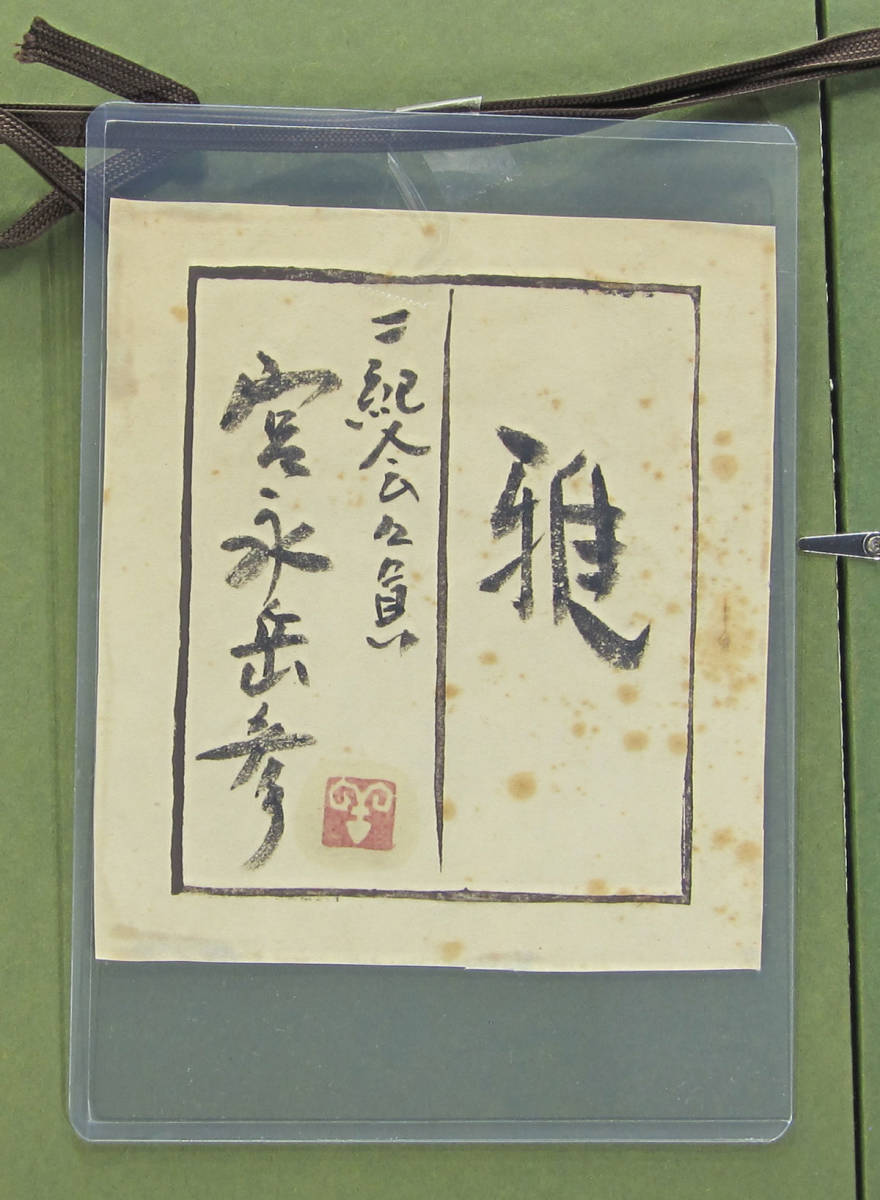 雅
二紀会会員
宮永岳彦